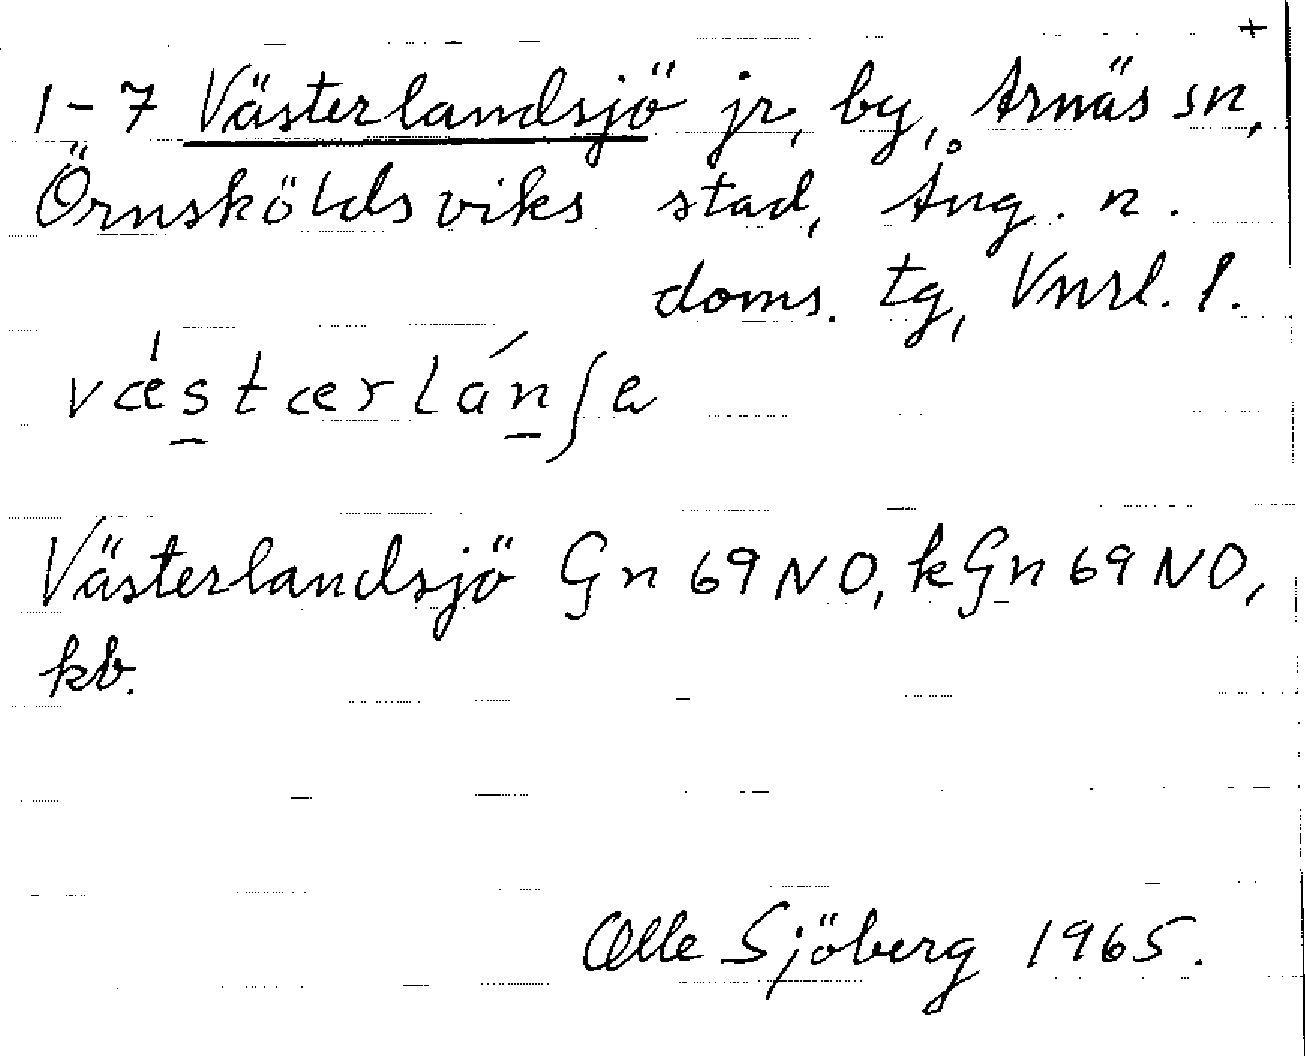 +
1-7 Västerlandsjö jr, by, Arnäs sn,
Örnsköldsviks stad, Ång. n.
doms. tg, Vnrl. l.
Västerlandsjö Gn 69 NO, kGn 69 NO,
kb.
Olle Sjöberg 1965.